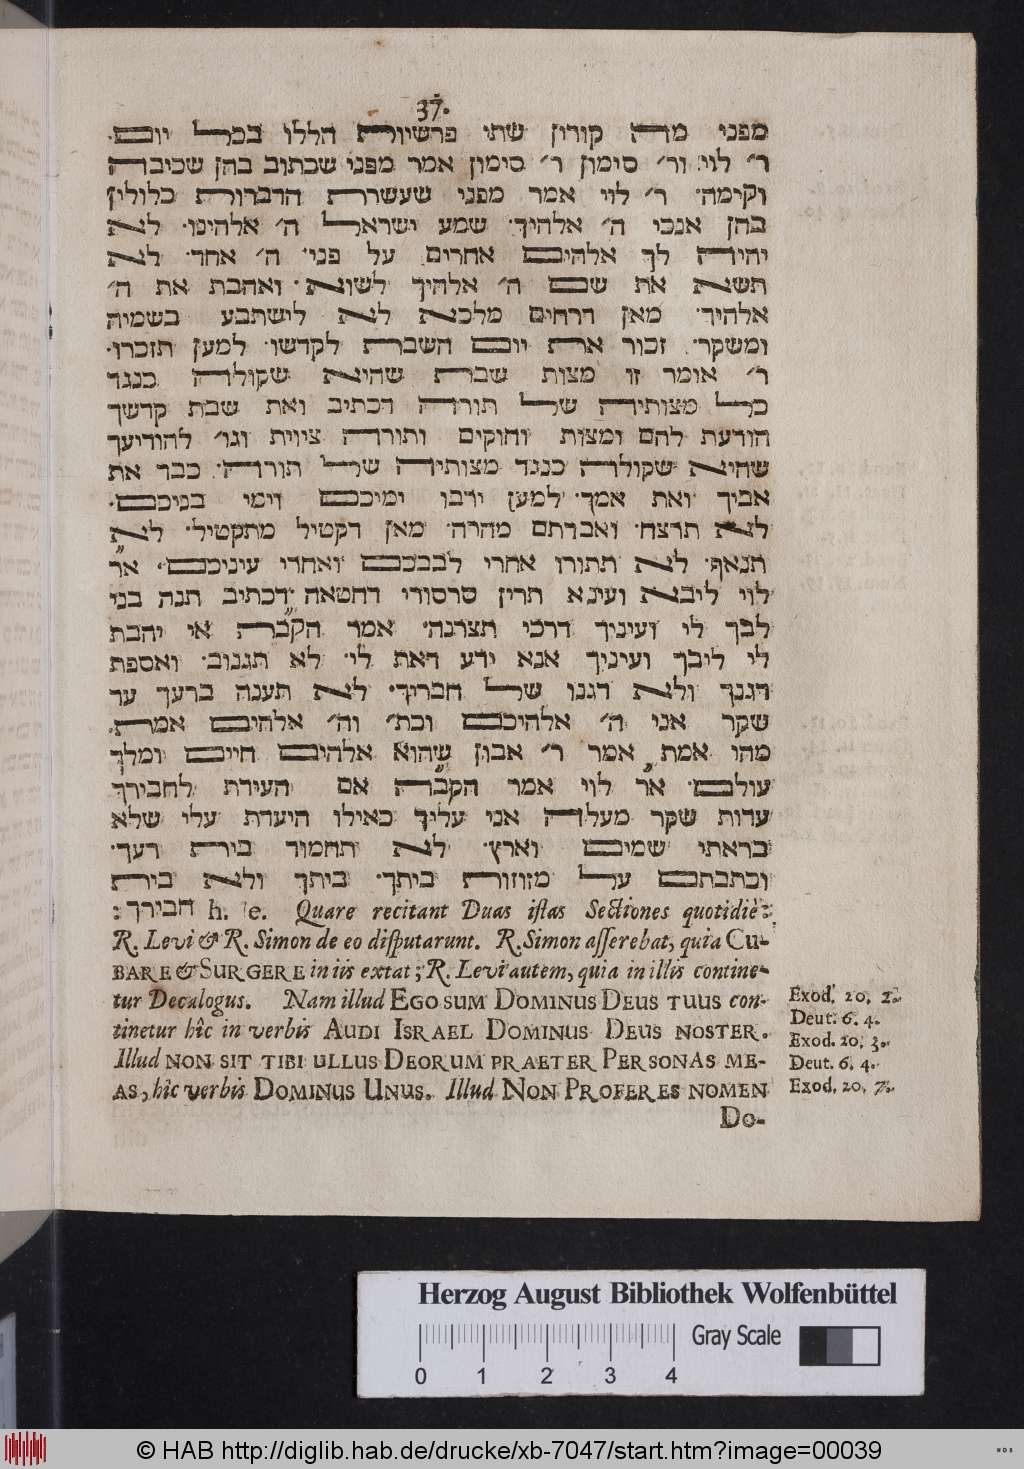 37.
מפני מה קורין שתי פרשיות הללו בכל יום.
ר׳ לוי ור׳ סימון ר׳ סימון אמר מפני שכתוב בהן שכיבה
וקימה. ר׳ לוי אמר מפני שעשרת הדברות כלולין
בהן אנכי ה׳ אלהיך. שמע ישראל ה׳ אלהינו. לא
יהיה לך אלהים אחרים על פני. ה׳ אחד. לא
תשא את שם ה׳ אלהיך לשוא. ואהבת את ה׳
אלהיך. מאן דרחים מלכא לא לישתבע בשמיה
ומשקר. זכור את יום השבת לקדשו. למען תזכרו.
ר׳ אומר זו מצות שבת שהיא שקולה כנגד
כל מצותיה של תורה דכתיב ואת שבת קדשך
הודעת להם ומצות וחוקים ותורה ציוית וגו׳ להודיעך
שהיא שקולה כנגד מצותיה של תורה. כבד את
אביך ואת אמך. למען ירבו ימיכם וימי בניכם.
לא תרצח. ואבדתם מהרה. מאן דקטיל מתקטיל. לא
תנאף. לא תתורו אחרי לבבכם ואחרי עיניכם. א״ר
לוי ליבא ועינא תרין סרסורי דחטאה דכתיב תנה בני
לבך לי ועיניך דרכי תצרנה. אמר הקב״ה אי יהבת
לי ליבך ועיניך אנא ידע דאת לי. לא תגנוב. ואספת
דגנך ולא דגנו של חבריך. לא תענה ברעך עד
שקר אני ה׳ אלהיכם וכת׳ וה׳ אלהים אמת.
מהו אמת אמר ר׳ אבון שהוא אלהים חיים ומלך
עולם. א״ר לוי אמר הקב״ה אם העידת לחבירך
עדות שקר מעלה אני עליך כאילו היעדת עלי שלא
בראתי שמים וארץ. לא תחמוד בית רעך.
וכתבתם על מזוזות ביתך. ביתך ולא בית
חבירך: h. e. Quare recitant Duas istas Sectiones quotidiè:
R. Levi & R. Simon de eo disputarunt. R. Simon asserebat, quia CU-
BARE & SURGERE in iis extat; R. Levi autem, quia in illis contine-
tur Decalogus. Nam illud EGO SUM DOMINUS DEUS TUUS con-
tinetur hîc in verbis AUDI ISRAEL DOMINUS DEUS NOSTER.
Illud NON SIT TIBI ULLUS DEORUM PRAETER PERSONAS ME-
AS, hîc verbis DOMINUS UNUS. Illud NON PROFERES NOMEN
DO-
Exod. 20, 2.
Deut. 6. 4.
Exod. 20, 3.
Deut. 6, 4.
Exod. 20, 7.
Herzog August Bibliothek Wolfenbüttel
Gray Scale
0 1 2 3 4
© HAB http://diglib.hab.de/drucke/xb-7047/start.htm?image=00039